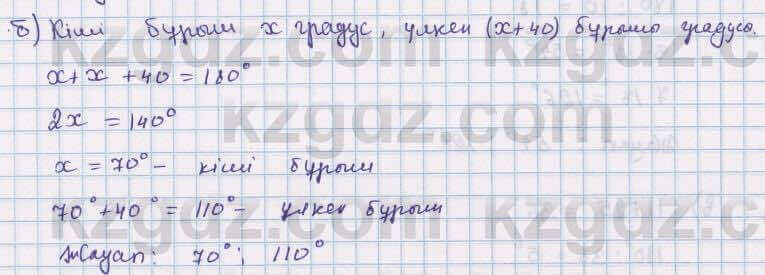 б) Кіші бұрыш x градус, үлкен (x+40) бұрышы градусы.
x+x+40=180°
2x=140°
x=70°- кіші бұрыш
70°+40°=110°- үлкен бұрыш
Жауап: 70°; 110°
kzgdz.com
kzgdz.com
kzgdz.com